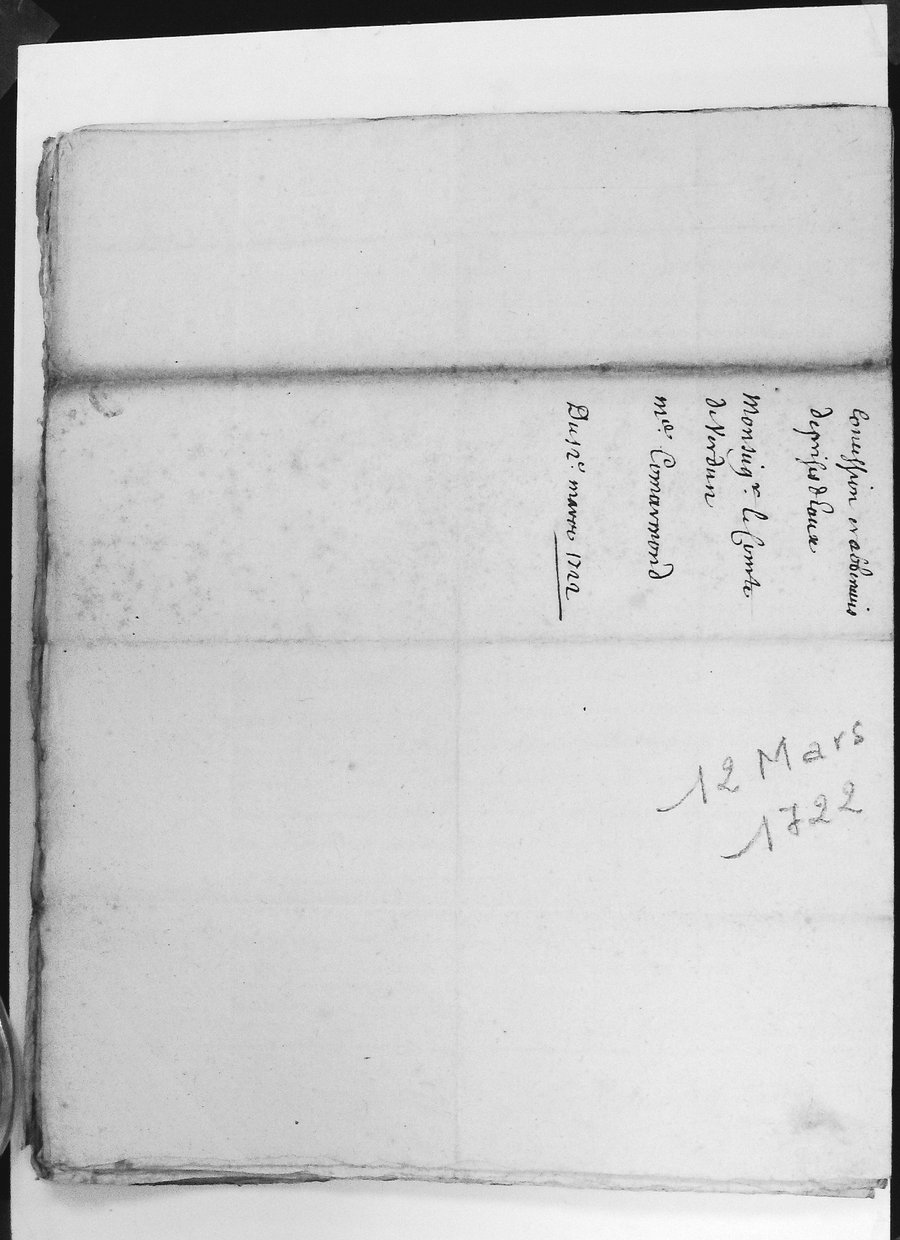 Concession et abbenevis
de prises d'eaux
Monseigr. le Comte
de Verdun
md. Comarmond
Du 12e. mars 1722
12 Mars
1722